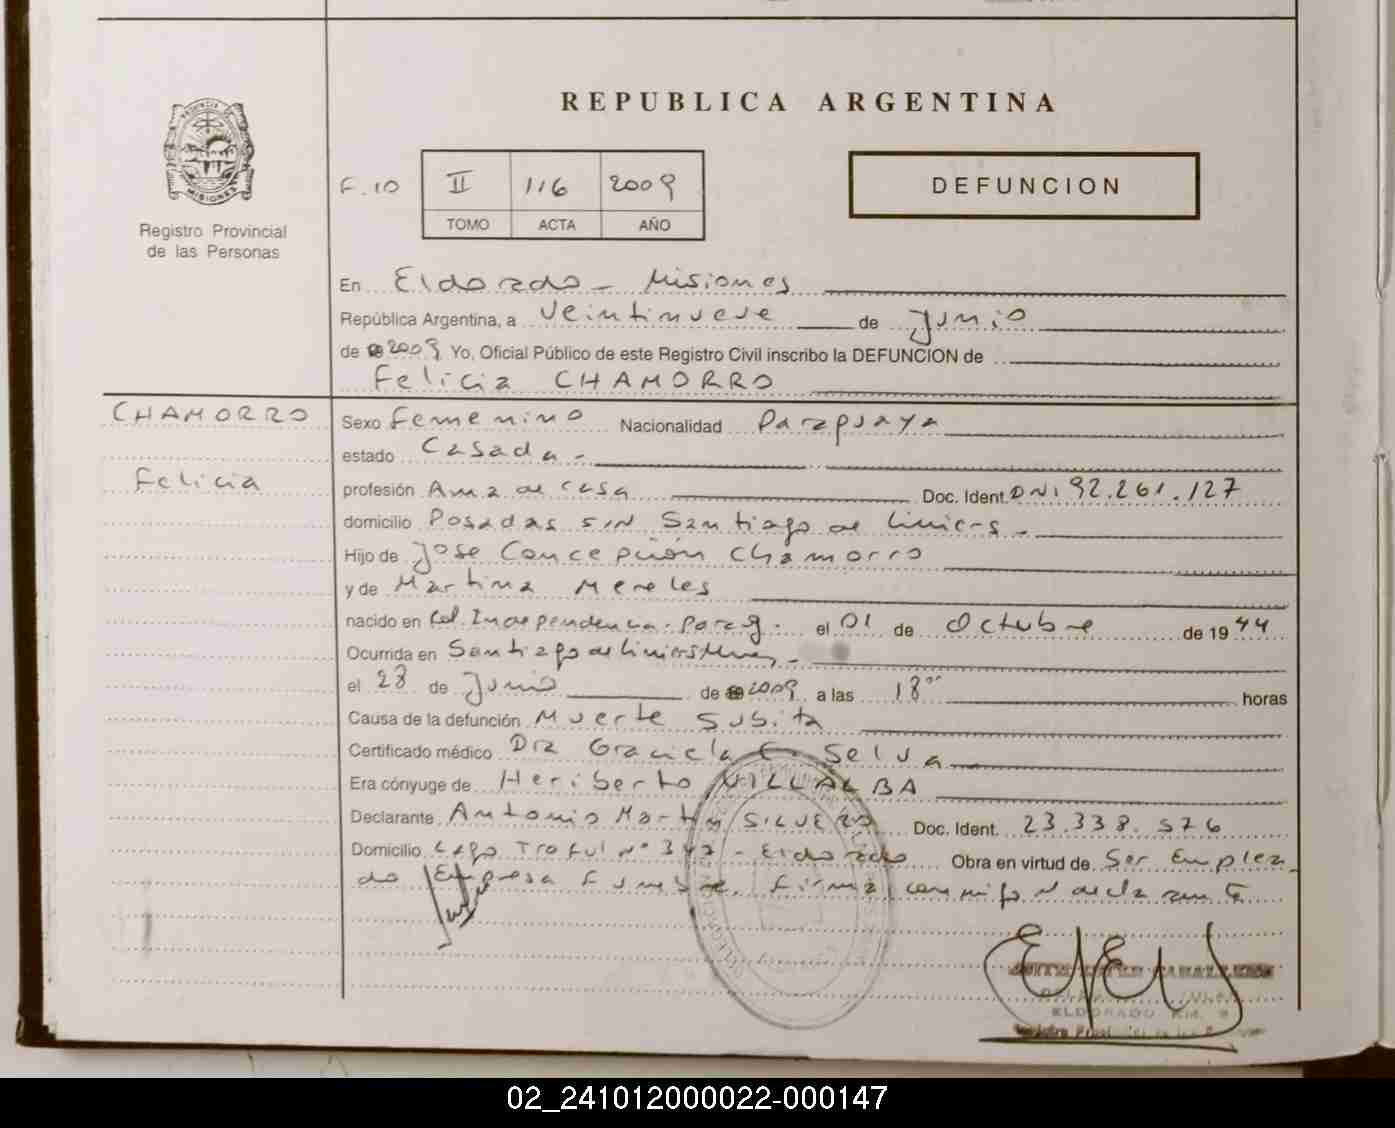 REPUBLICA ARGENTINA
MISIONES
Registro Provincial
de las Personas
F. 10 II 116 2009
TOMO ACTA AÑO
DEFUNCION
En Eldorado - Misiones
República Argentina, a Veintinueve de Junio
de 2009 Yo, Oficial Público de este Registro Civil inscribo la DEFUNCION de
Felicia CHAMORRO
CHAMORRO
Felicia
Sexo Femenino Nacionalidad Paraguaya
estado Casada -
profesión Ama de casa Doc. Ident. DNI 92.261.127
domicilio Posadas S/N Santiago de Liniers -
Hijo de Jose Concepción Chamorro
y de Martina Mereles
nacido en Col. Independencia - Parag. el 01 de Octubre de 1944
Ocurrida en Santiago de Liniers
el 28 de Junio de 2009 a las 18 horas
Causa de la defunción Muerte Subita
Certificado médico Dra Graciela E. Selva
Era cónyuge de Heriberto VILLALBA
Declarante Antonio Martin SILVERO Doc. Ident. 23.338.576
Domicilio Lago Traful Nº 347 - Eldorado Obra en virtud de Ser Emplea-
do Empresa Funebre. Firma conmigo el declarante
ELDORADO KM. 9
02_241012000022-000147